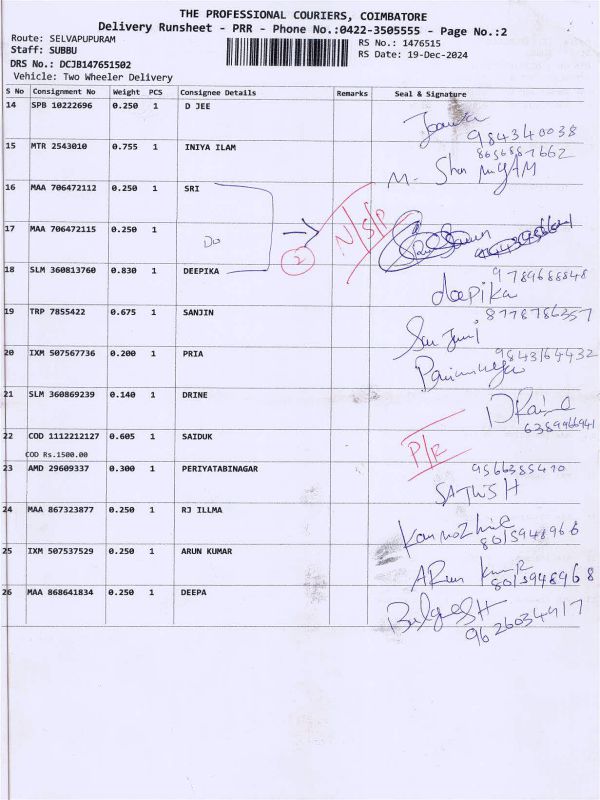 THE PROFESSIONAL COURIERS, COIMBATORE
Delivery Runsheet - PRR - Phone No.:0422-3505555 - Page No.:2
Route: SELVAPUPURAM
RS No.: 1476515
Staff: SUBBU
RS Date: 19-Dec-2024
DRS No.: DCJB147651502
Vehicle: Two Wheeler Delivery
S No Consignment No Weight PCS Consignee Details Remarks Seal & Signature
14 SPB 10222696 0.250 1 D JEE
984340038
15 MTR 2543010 0.755 1 INIYA ILAM
8656887662
M.
16 MAA 706472112 0.250 1 SRI
N/S/P
17 MAA 706472115 0.250 1
Do
2
18 SLM 360813760 0.830 1 DEEPIKA
9789688848
deepika
19 TRP 7855422 0.675 1 SANJIN
8778786357
20 IXM 507567736 0.200 1 PRIA
9843164432
21 SLM 360869239 0.140 1 DRINE
6389966941
22 COD 1112212127 0.605 1 SAIDUK
P/R
COD Rs.1500.00
23 AMD 29609337 0.300 1 PERIYATABINAGAR
9566385410
SATHISH
24 MAA 867323877 0.250 1 RJ ILLMA
8015948968
25 IXM 507537529 0.250 1 ARUN KUMAR
ARun KumaR
8015948968
26 MAA 868641834 0.250 1 DEEPA
9626034917